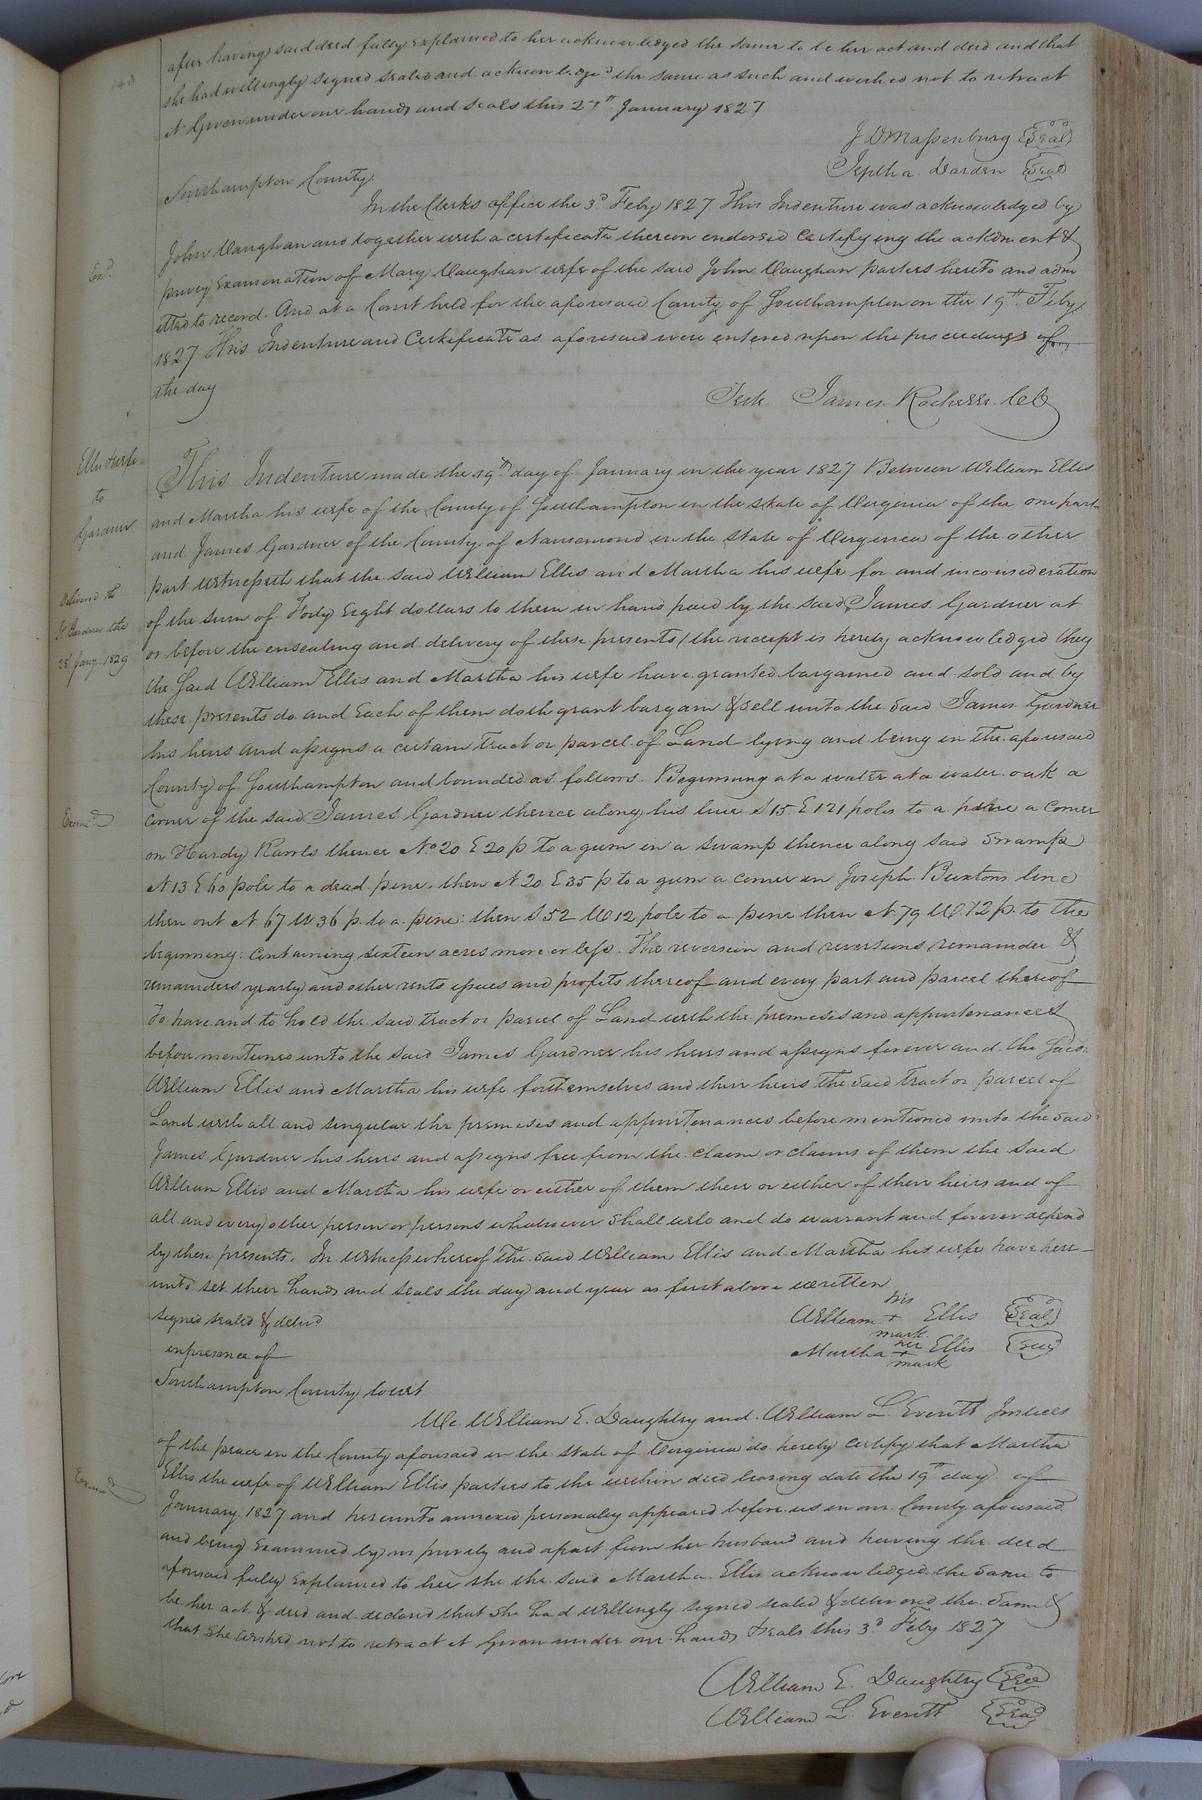 after having said deed fully explained to her acknowledged the same to be her act and deed and that
she had willingly signed sealed and acknowledgd the same as such and wished not to retract
it Given under our hands and seals this 27th January 1827
J D Massenburg (Seal)
Jeptha Darden (Seal)
Southampton County
In the Clerks office the 3d Feby 1827. This Indenture was acknowledged by
John Vaughan and together with a certificate thereon endorsed certifying the ackdment &
privey examenation of Mary Vaughan wife of the said John Vaughan parties hereto and adm
Exd
itted to record. And at a Court held for the aforesaid County of Southampton on the 19th Feby
1827 This Indenture and Certificate as aforesaid were entered upon the proceedings of
the day
Teste James Rochelle CC
Ellis & wife
to
Gardner
This Indenture made the 19th day of January in the year 1827 Between William Ellis
and Martha his wife of the County of Southampton in the state of Virginia of the one part
and James Gardner of the County of Nansemond in the State of Virginia of the other
part witnesseth that the said William Ellis and Martha his wife for and in consideration
Delivered to
Js Gardner the
28 Jany 1829
of the sum of Forty Eight dollars to them in hand paid by the said James Gardner at
or before the ensealing and delivery of these presents (the receipt is hereby acknowledged they
the said William Ellis and Martha his wife have granted bargained and sold and by
these presents do and Each of them doth grant bargain & sell unto the said James Gardner
his heirs and assigns a certain tract or parcel of Land lying and being in the aforesaid
County of Southampton and bounded as follows. Beginning at a water at a water oak a
Examd
corner of the said James Gardner thence along his line S 15 E 121 poles to a pine a corner
on Hardy Rawls thence No 20 E 20 p to a gum in a swamp thence along said Swamp
N 13 E 60 pole to a dead pine. then N 20 E 35 p to a gum a corner in Joseph Buxtons line
then out N. 67 W 36 p. to a pine: then S 52 W 12 pole to a pine then N. 79 W. 72 p. to the
beginning: containing sixteen acres more or less. The reversion and reversions remainder &
remainders yearly and other rents issues and profits thereof and every part and parcel thereof
To have and to hold the said tract or parcel of Land with the premeses and appurtenances
before mentioned unto the said James Gardner his heirs and assigns forever and the said
William Ellis and Martha his wife for themselves and their heirs the said tract or parcel of
Land with all and singular the premeses and appurtenances before mentioned unto the said
James Gardner his heirs and assigns free from the claim or claims of them the said
William Ellis and Martha his wife or either of them their or either of their heirs and of
all and every other person or persons whatsoever shall will and do warrant and forever defend
by these presents. In witness whereof the said William Ellis and Martha his wife have here
unto set their hands and seals the day and year as first above written
signed sealed & delivd
in presence of
his
William + Ellis (Seal)
mark
her
Martha + Ellis (Seal)
mark
Southampton County Court
We William E. Daughtry and William L. Everitt Justices
of the peace in the County aforesaid in the state of Virginia do hereby certify that Martha
Ellis the wife of William Ellis parties to the within deed bearing date the 19th day of
Examd
January 1827 and hereunto annexed personally appeared before us in our County aforesaid
and being Examined by us privily and apart from her husband and having the deed
aforesaid fully Explained to her she the said Martha Ellis acknowledged the same to
be her act & deed and declared that she had willingly signed sealed & delivered the same &
that she wished not to retract it Given under our hands & seals this 3d Feby 1827
William E. Daughtry (Seal)
William L. Everitt (Seal)